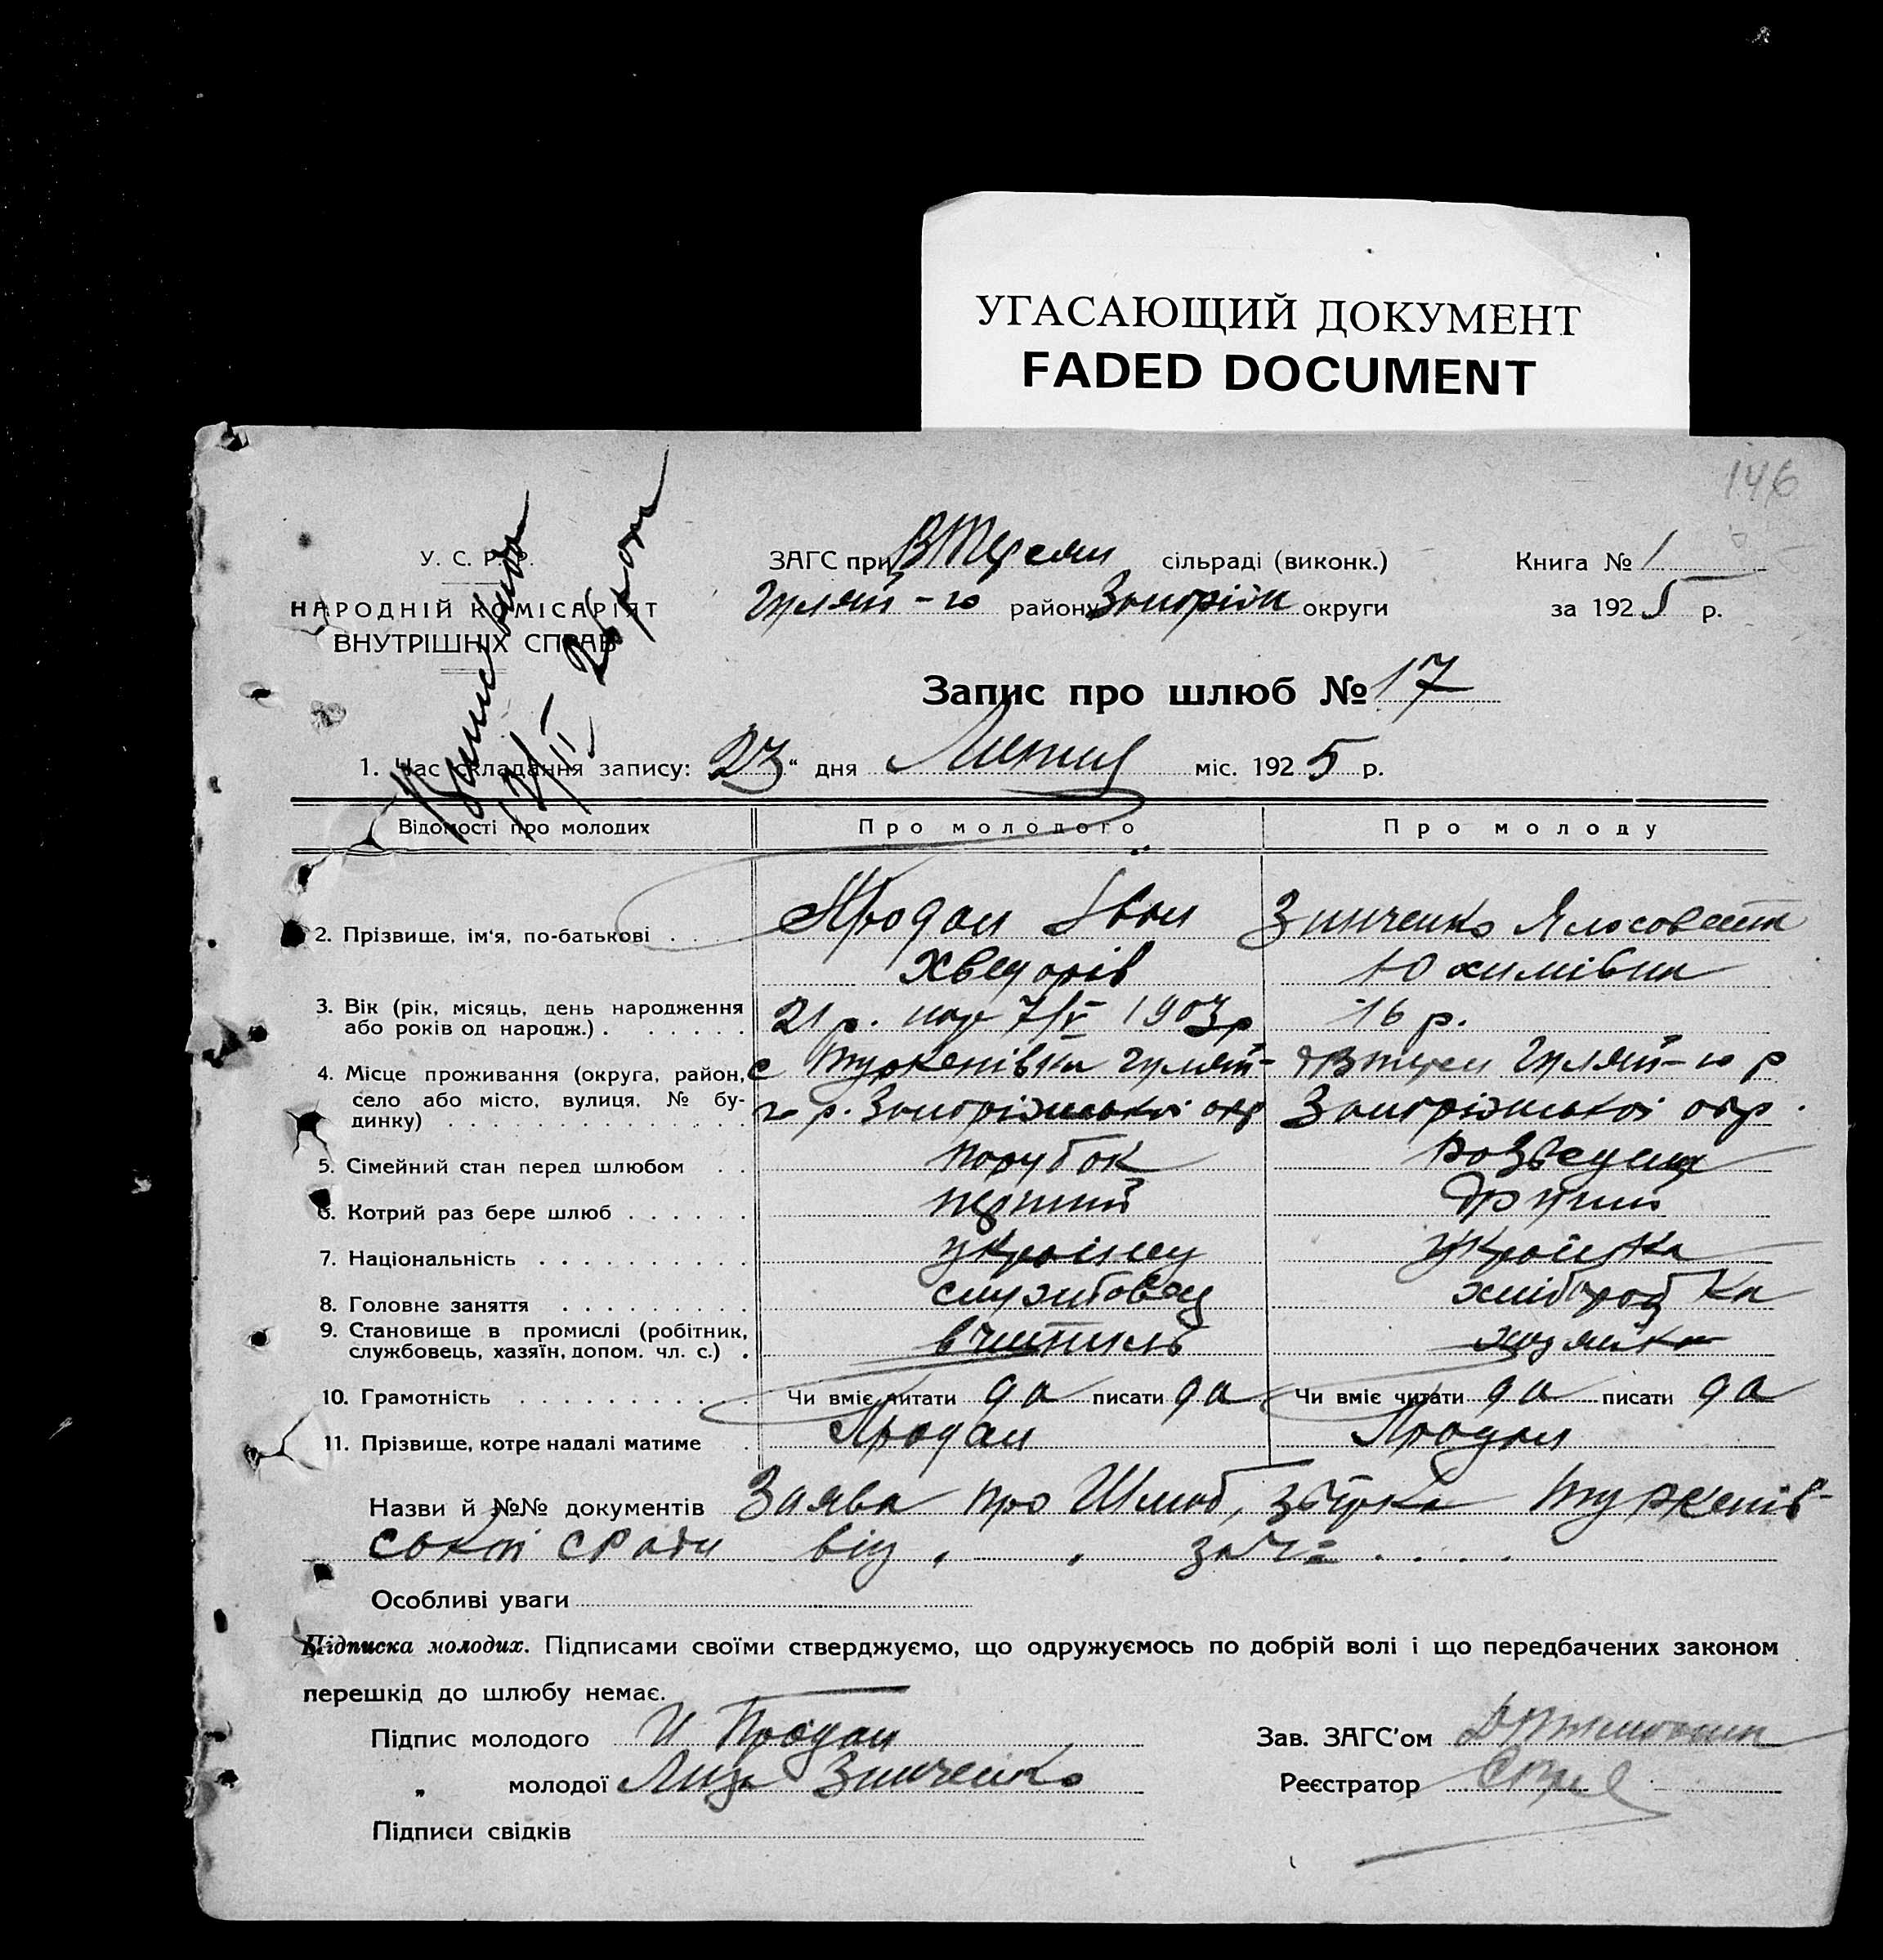 УГАСАЮЩИЙ ДОКУМЕНТ
FADED DOCUMENT
146
У. С. Р. Р.
НАРОДНІЙ КОМІСАРІЯТ
ВНУТРІШНІХ СПРАВ
ЗАГС при сільраді (виконк.)
Гуляй-го району Запоріж округи
Книга № 1
за 1925 р.
Запис про шлюб № 17
1. Час складання запису: 23 " дня Лютня міс. 1925 р.
Відомості про молодих Про молодого Про молоду
2. Прізвище, ім'я, по-батькові . . Продан Іван Зинченко Ялосовета
Хведорів Юхимівна
3. Вік (рік, місяць, день народження або років од народж.) . 21 р. нар 7/V 1903 р 16 р.
4. Місце проживання (округа, район, село або місто, вулиця, № будинку) с Туркенівка Гуляй-го р. Запоріжської окр Гуляй-го р Запоріжської окр.
5. Сімейний стан перед шлюбом . . парубок розведена
6. Котрий раз бере шлюб . . . . . . перший другий
7. Національність . . . . . . . . . . українец українка
8. Головне заняття . . . . . . . . . службовец хлібороб ка
9. Становище в промислі (робітник, службовець, хазяїн, допом. чл. с.) . вчитиль хазяйка
10. Грамотність . . . . . . . . . . Чи вміє читати да писати да Чи вміє читати да писати да
11. Прізвище, котре надалі матиме . Продан Продан
Назви й №№ документів Заява про Шлюб, Туркенів-
ської сради від . . за ч= . . . .
Особливі уваги
Підписка молодих. Підписами своїми стверджуємо, що одружуємось по добрій волі і що передбачених законом
перешкід до шлюбу немає.
Підпис молодого И Продан
Зав. ЗАГС'ом
„ молодої Лиза Зинченко
Реєстратор
Підписи свідків